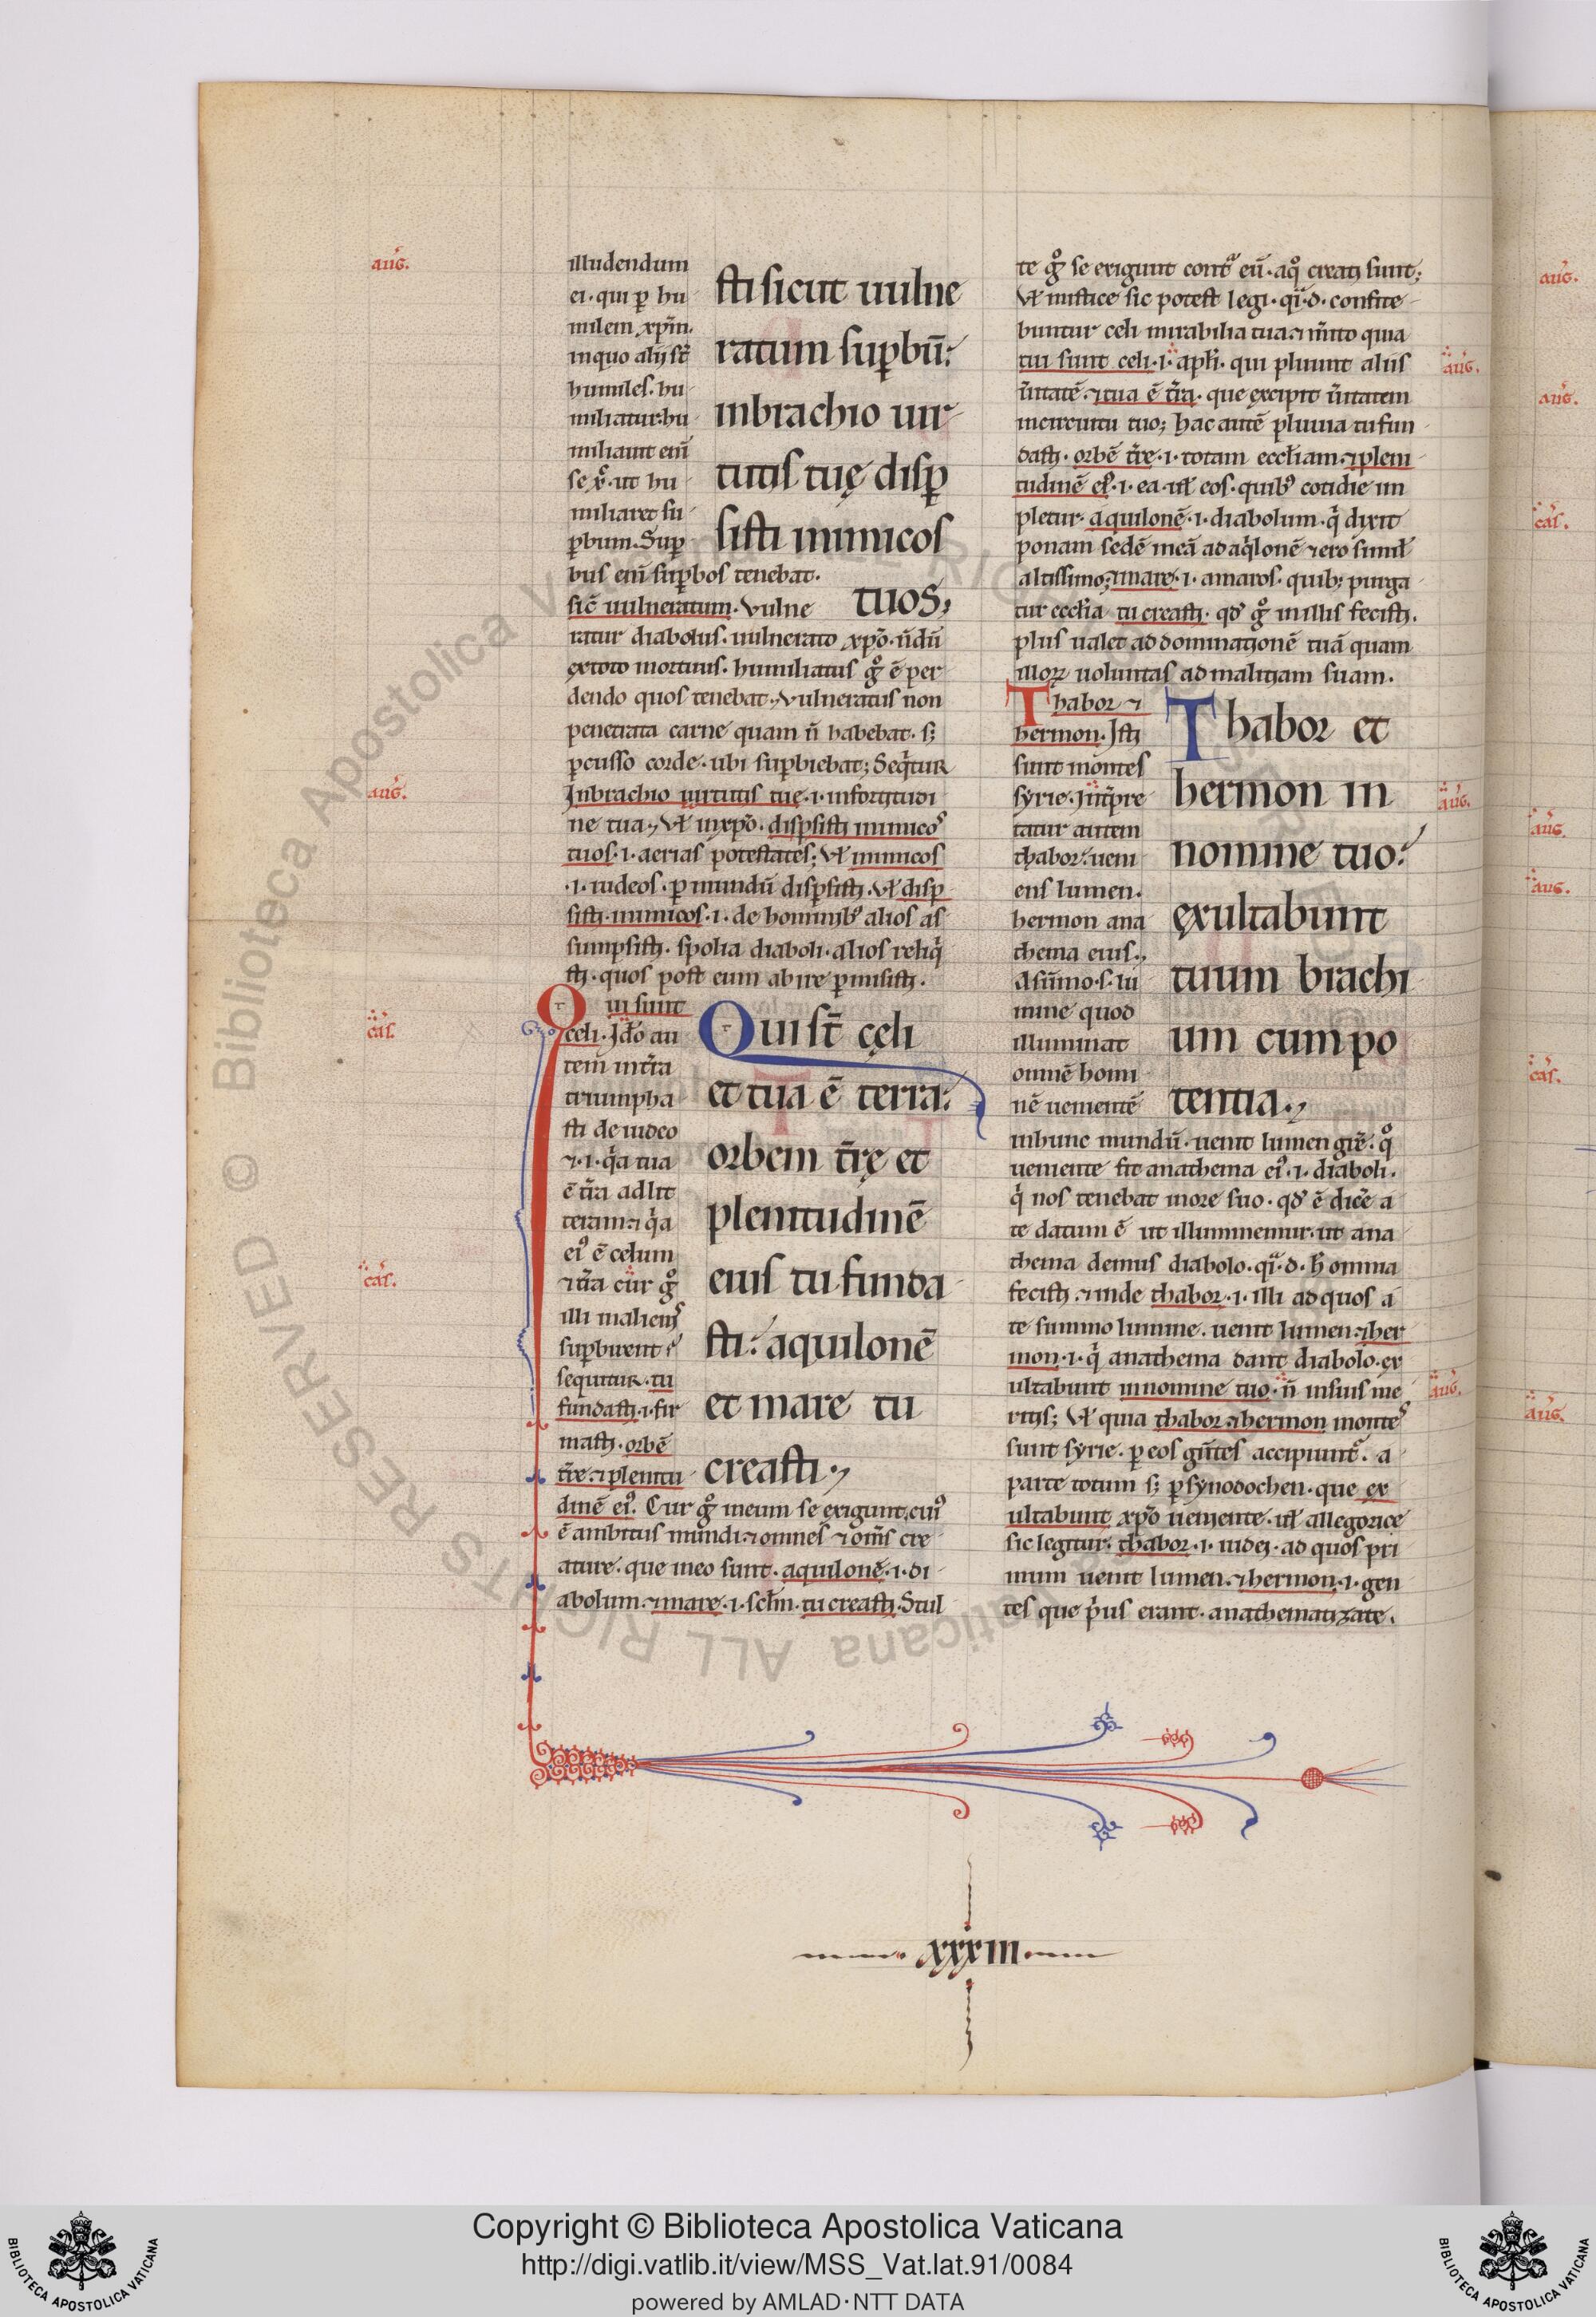 auḡ.
illudendum
ei. qui ꝑ hu
milem xp̄m.
in quo alij st̄
humiles. hu
miliatur: hu
miliauit eni̅
se x̄. ut hu
miliaret su
ꝑbum. Suꝑ
bus eni̅ suꝑbos tenebat.
sic̄ uulneratum. Vulne
ratur diabolus. uulnerato xp̄o. n̄dū
ex toto mortuus. humiliatus gͦ ē per
dendo quos tenebat. Vulneratus non
penetrata carne quam n̄ habebat. s;
ꝑcusso corde. ubi suꝑbiebat; Seqͥtur
auḡ.
In brachio uirtutis tuę .i. in fortitudi
ne tua. Vl̄ in xp̄o. disꝑsisti inimicoˢ
tuos .i. aerias potestates; Vl̄ inimicos
.i. iudeos. ꝑ mundū disꝑsisti. Vl̄ disꝑ
sisti. inimicos .i. de hominib; alios as
sumpsisti. spolia diaboli. alios reliqͥ
sti. quos post eum abire ꝑmisisti.
sti sicut uulne
ratum suꝑbū:
in brachio uir
tutis tuę disꝑ
sisti inimicos
tuos;
cas̄.
Qui sunt
celi. Id̄o au
tem in tr̄a
triumpha
sti de iudeo
⁊ .i. qͥa tua
ē tr̄a ad lit
teram ⁊ qͥa
eiꝰ ē celum
cas̄.
⁊ tr̄a cur gͦ
illi mali enīˢ
suꝑbirent?
sequitur. tu
fundasti .i. fir
masti. orbē
tr̄re. ⁊ plenitu
dinē eiꝰ. Cur gͦ in eum se erigunt, cuiꝰ
ē ambitus mundi ⁊ omnes ⁊ om̄s cre
ature. que in eo sunt. aquilonē .i. di
abolum. ⁊ mare .i. sc̄lm. tu creasti. Stul
Qui st̄ cęli
et tua ē terra:
orbem tr̄ę et
plenitudinē
eius tu funda
sti: aquilonē
et mare tu
creasti.
te gͦ se erigunt contͣ eū. a qͦ creati sunt;
Vl̄ mistice sic potest legi. qͣi .d. confite
buntur celi mirabilia tua. ⁊ m̄ito quia
auḡ.
tui sunt celi .i. apl̄i. qui pluunt aliis
ūitatē. ⁊ tua ē tr̄a. que excipit ūitatem
in circuitu tuo; hac autē pluuia tu fun
dasti. orbē tr̄re .i. totam eccl̄iam. ⁊ pleni
tudinē eiꝰ .i. ea. ul̄ eos. quibꝰ cotidie im
pletur. aquilonē .i. diabolum. qͥ dixit
ponam sedē meā ad aqͥlonē ⁊ ero simil̄
altissimo; ⁊ mare .i. amaros. quib; purga
tur eccl̄ia tu creasti. qd̄ gͦ in illis fecisti.
plus ualet ad dominationē tuā quam
illoꝝ uoluntas ad malitiam suam.
Thabor ⁊
hermon. Isti
sunt montes
auḡ.
syrie. Int̄pre
tatur autem
thabor. ueni
ens lumen.
hermon ana
thema eius.
A sūmo .s. lu
mine quod
illuminat
omnē homi
nē uenientē
in hunc mundū. uenit lumen gr̄e. qͦ
ueniente fit anathema eiꝰ .i. diaboli.
qͥ nos tenebat more suo. qd̄ ē dice a
te datum ē ut illuminemur. ut ana
thema demus diabolo. qͣi .d. h̄ omnia
fecisti. ⁊ inde thabor .i. illi ad quos a
te summo lumine. uenit lumen ⁊ her
mon .i. qͥ anathema dant diabolo. ex
auḡ.
ultabunt in nomine tuo. n̄ in suis me
ritis; Vl̄ quia thabor ⁊ hermon monteˢ
sunt syrie. ꝑ eos gn̄tes accipiunt. a
parte totum s; ꝑ synodochen. que ex
ultabunt xp̄o ueniente. ul̄ allegorice
sic legitur. thabor .i. iudei. ad quos pri
mum uenit lumen. ⁊ hermon .i. gen
tes que pͥus erant. anathematizate.
Thabor et
hermon in
nomine tuo:
exultabunt
tuum brachi
um cum po
tentia.
xxxiii
auḡ.
auḡ.
cas̄.
auḡ.
auḡ.
cas̄.
auḡ.
Biblioteca Apostolica Vaticana ALL RIGHTS RESERVED ©
Copyright © Biblioteca Apostolica Vaticana
http://digi.vatlib.it/view/MSS_Vat.lat.91/0084
powered by AMLAD·NTT DATA
BIBLIOTECA APOSTOLICA VATICANA
BIBLIOTECA APOSTOLICA VATICANA